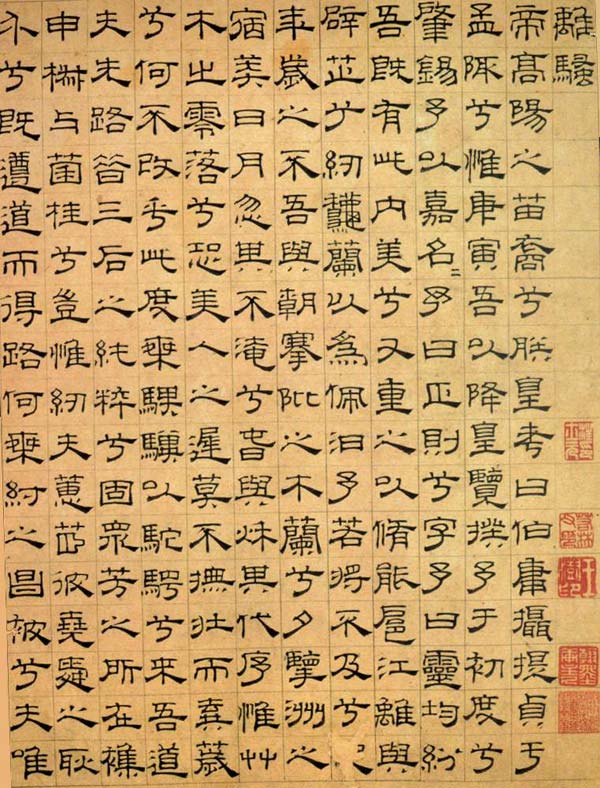 離騷
帝高陽之苗裔兮朕皇考曰伯庸攝提貞于
孟陬兮惟庚寅吾以降皇覽揆予于初度兮
肇錫予以嘉名〻予曰正則兮字予曰靈均紛
吾既有此內美兮又重之以脩能扈江離與
辟芷兮紉龝蘭以為佩汩予若將不及兮
年歲之不吾與朝搴阰之木蘭兮夕擥洲之
宿莽日月忽其不淹兮春與秌其代序惟艸
木之零落兮恐美人之遲莫不撫壯而棄薉
兮何不改乎此度乘騏驥以駝騁兮來吾道
夫先路昔三后之純粹兮固眾芳之所在襍
申椒与菌桂兮豈惟紉夫蕙茝彼堯舜之耿
介兮既遵道而得路何桀紂之昌被兮夫唯